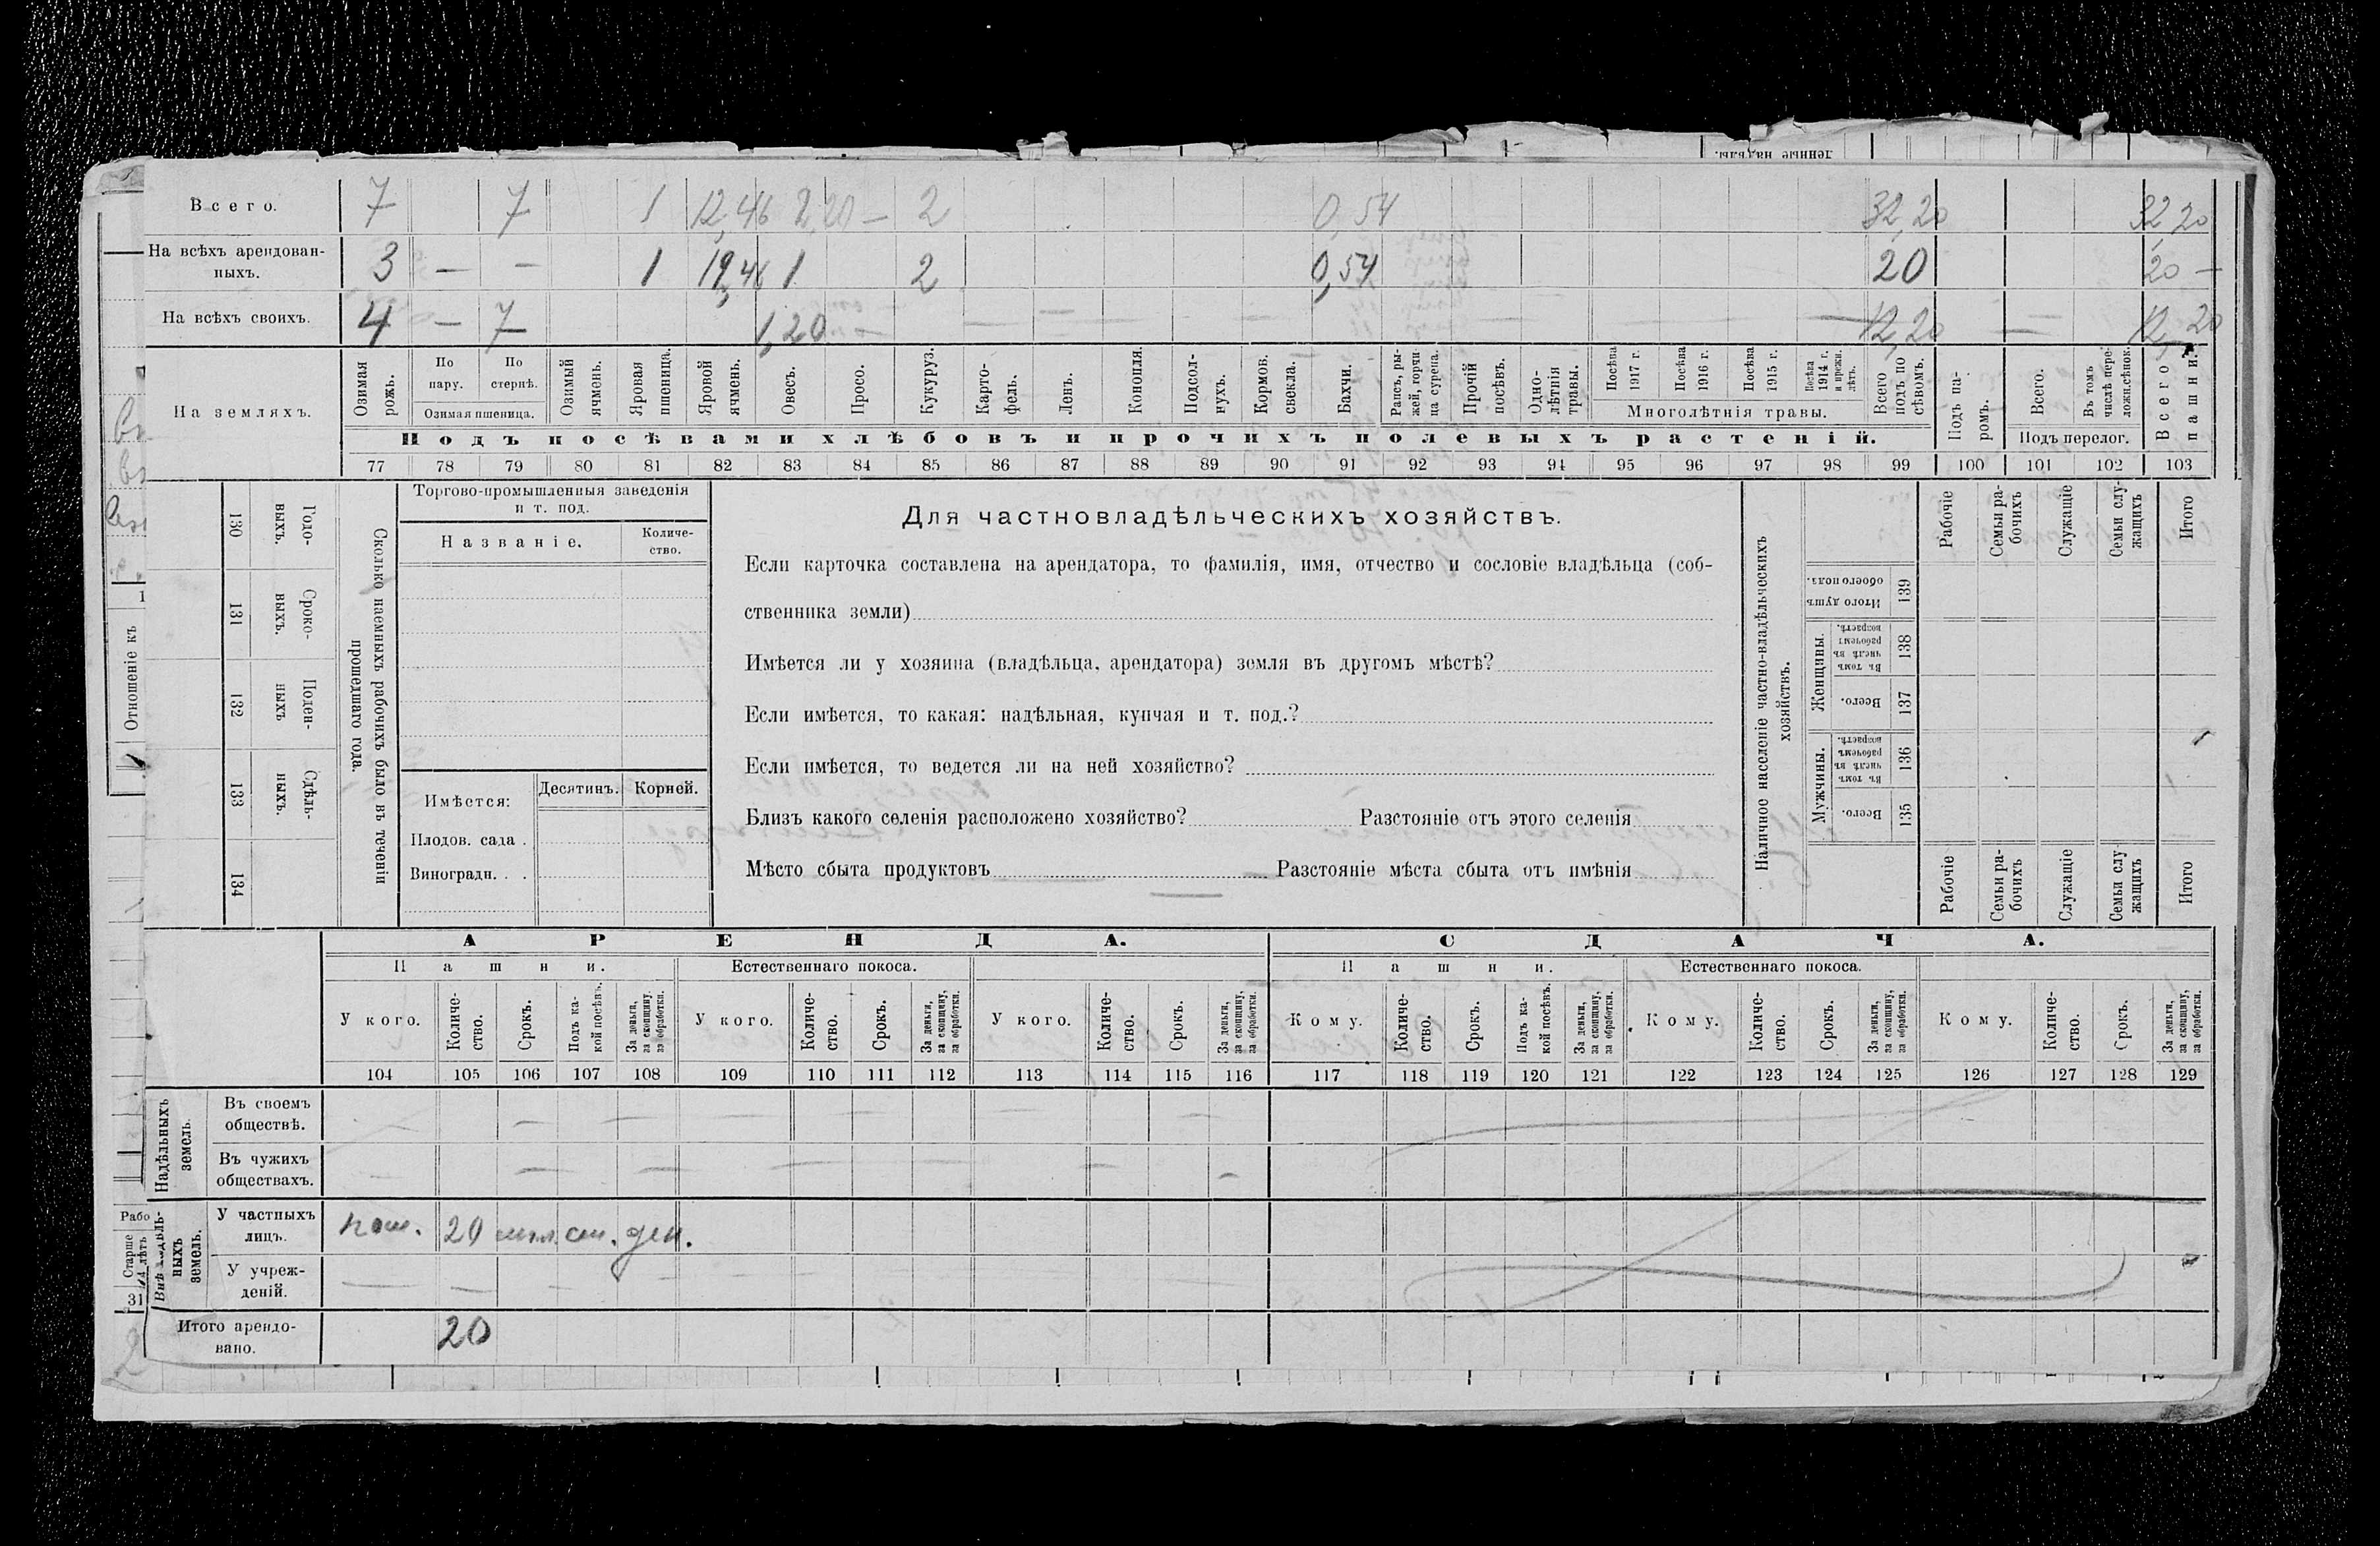 Всего. 7 7 1 12,46 2,20 — 2 0,54 32,20 32,20
На всѣхъ арендованныхъ. 3 — — 1 12,46 1 2 0,54 20 20 —
На всѣхъ своихъ. 4 — 7 1,20 — 12,20 12,20
На земляхъ.
Озимая рожь.
По пару.
По стернѣ.
Озимая пшеница.
Озимый ячмень.
Яровая пшеница.
Яровой ячмень.
Овесъ.
Просо.
Кукуруз.
Картофель.
Ленъ.
Конопля.
Подсолнухъ.
Кормов. свекла.
Бахчи.
Рапсъ, рыжей, горчица сурепа.
Прочій посѣвъ.
Однолѣтнія травы.
Посѣва 1917 г.
Посѣва 1916 г.
Посѣва 1915 г.
Посѣва 1914 г. и прежн. лѣтъ.
Многолѣтнія травы.
Всего подъ посѣвомъ.
Подъ паромъ.
Всего.
Въ томъ числѣ
Подъ перелог.
Всего пашни.
Подъ посѣвами хлѣбовъ и прочихъ полевыхъ растеній.
77 78 79 80 81 82 83 84 85 86 87 88 89 90 91 92 93 94 95 96 97 98 99 100 101 102 103
130 Годовыхъ.
131 Сроковыхъ.
132 Поденныхъ
133 Сдѣльныхъ.
134
Сколько наемныхъ рабочихъ было въ теченіи
прошедшаго года.
Торгово-промышленныя заведенія
и т. под.
Названіе.
Количество.
Имѣется:
Десятинъ.
Корней.
Плодов. сада .
Виноградн. . .
Для частновладѣльческихъ хозяйствъ.
Если карточка составлена на арендатора, то фамилія, имя, отчество и сословіе владѣльца (соб-
ственника земли)
Имѣется ли у хозяина (владѣльца, арендатора) земля въ другомъ мѣстѣ?
Если имѣется, то какая: надѣльная, купчая и т. под.?
Если имѣется, то ведется ли на ней хозяйство?
Близъ какого селенія расположено хозяйство? Разстояніе отъ этого селенія
Мѣсто сбыта продуктовъ Разстояніе мѣста сбыта отъ имѣнія
Наличное населеніе частно-владѣльческихъ
хозяйствъ.
Итого душъ обоего пола. 139
Женщины.
Въ томъ числѣ въ рабочемъ возрастѣ. 138
Всего. 137
Мужчины.
Въ томъ числѣ въ рабочемъ возрастѣ. 136
Всего. 135
Рабочіе
Семьи рабочихъ
Служащіе
Семьи служащихъ
Итого
Рабочіе
Семьи рабочихъ
Служащіе
Семьи служащихъ
Итого
АРЕНДА. СДАЧА.
Пашни. Естественнаго покоса. Пашни. Естественнаго покоса.
У кого.
Количество.
Срокъ.
Подъ какой посѣвъ.
За деньги, за скопщину, за обработки.
У кого.
Количество.
Срокъ.
За деньги, за скопщину, за обработки.
У кого.
Количество.
Срокъ.
За деньги, за скопщину, за обработки.
Кому.
Количество.
Срокъ.
Подъ какой посѣвъ.
За деньги, за скопщину, за обработки.
Кому.
Количество.
Срокъ.
За деньги, за скопщину, за обработки.
Кому.
Количество.
Срокъ.
За деньги, за скопщину, за обработки.
104 105 106 107 108 109 110 111 112 113 114 115 116 117 118 119 120 121 122 123 124 125 126 127 128 129
Надѣльныхъ земель.
Въ своемъ обществѣ.
Въ чужихъ обществахъ.
Внѣ надѣльныхъ земель.
У частныхъ лицъ. 20 ден.
У учрежденій.
Итого арендовано. 20
Отношеніе къ
Рабо
Старше
лѣтъ
31
2